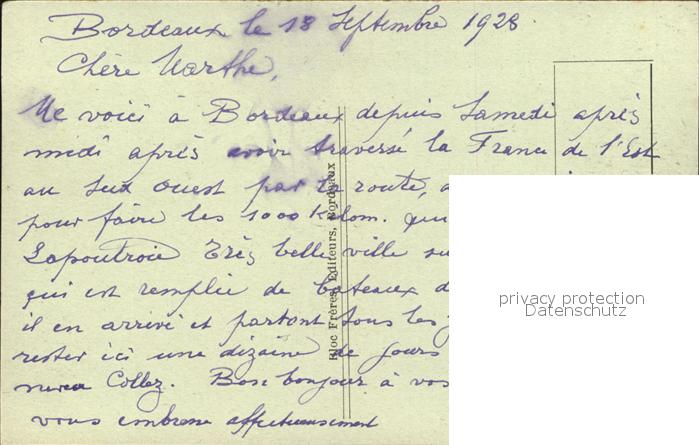 Bordeaux le 18 Septembre 1928
Chère Marthe,
Me voici à Bordeaux depuis Samedi après
midi après avoir traversé la France de l'Est
au Sud Ouest par la route,
pour faire les 1000 Kilom.
Lapoutroie Très belle ville
qui est remplie de bateaux
il en arrive et partent tous les
rester ici une dizaine de jours
Collez. Bon bonjour à vos
vous embrasse affectueusement
Bloc Frères, Editeurs, Bordeaux
privacy protection
Datenschutz